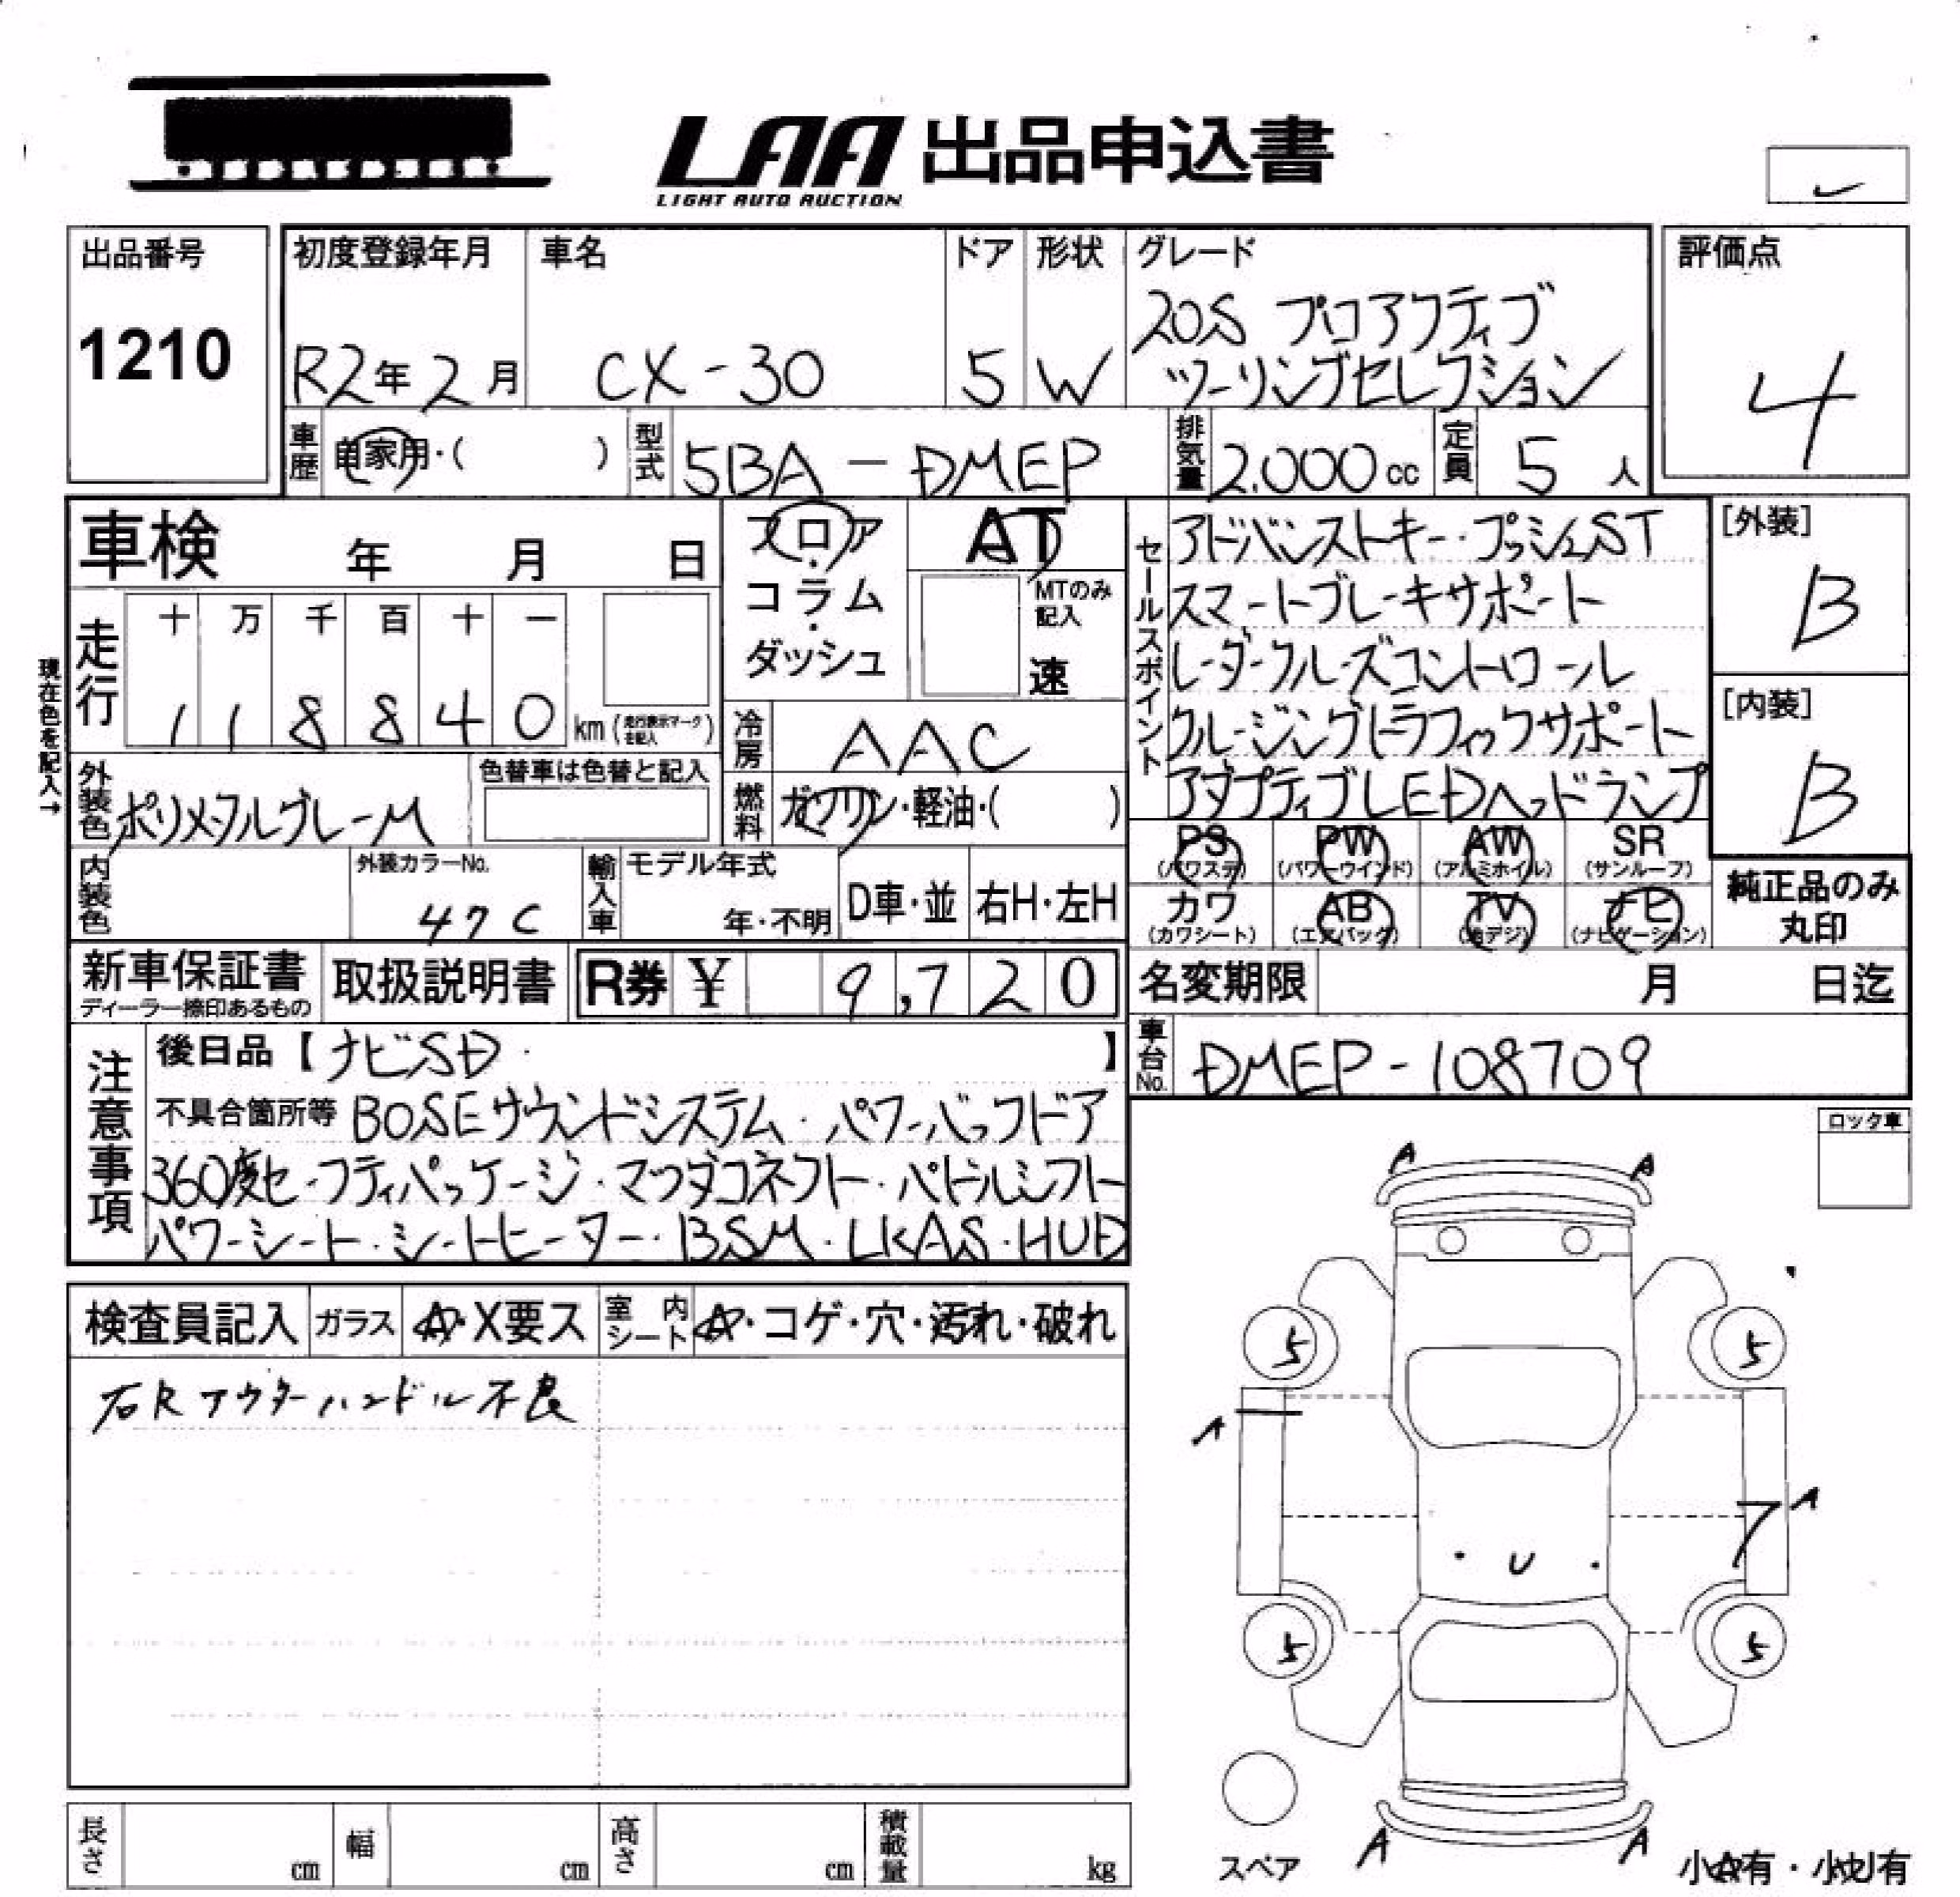 LAA 出品申込書
LIGHT AUTO AUCTION
出品番号
1210
初度登録年月
R2年2月
車名
CX-30
ドア
5
形状
W
グレード
20S プロアクティブ
ツーリングセレクション
評価点
4
車歴 自家用・( )
型式 5BA-DMEP
排気量 2.000cc
定員 5人
車検 年 月 日
フロア・
コラム・
ダッシュ
AT
MTのみ記入
速
現在色を記入→
走行
十 万 千 百 十 一
1 1 8 8 4 0 km (走行表示マークを記入)
冷房 AAC
燃料 ガソリン・軽油・( )
外装色 ポリメタルグレーM
色替車は色替と記入
内装色
外装カラーNo.
47C
輸入車
モデル年式
年・不明
D車・並
右H・左H
セールスポイント
アドバンストキー・プッシュST
スマートブレーキサポート
レーダークルーズコントロール
クルージングトラフィックサポート
アダプティブLEDヘッドランプ
[外装]
B
[内装]
B
PS (パワステ) PW (パワーウインド) AW (アルミホイル) SR (サンルーフ)
カワ (カワシート) AB (エアバック) TV (地デジ) ナビ (ナビゲーション)
純正品のみ
丸印
新車保証書
ディーラー捺印あるもの
取扱説明書
R券 ¥ 9,720
名変期限 月 日迄
車台No. DMEP-108709
注意事項
後日品【ナビSD・ 】
不具合箇所等 BOSEサウンドシステム・パワーバックドア
360度セーフティパッケージ・マツダコネクト・パドルシフト
パワーシート・シートヒーター・BSM・LKAS・HUD
ロック車
検査員記入 ガラス A・X要ス 室内シート A・コゲ・穴・汚れ・破れ
右Rアウターハンドル不良
A A
5 5
A
A
U
5 5
A A
スペア
小A有・小U有
長さ cm 幅 cm 高さ cm 積載量 kg